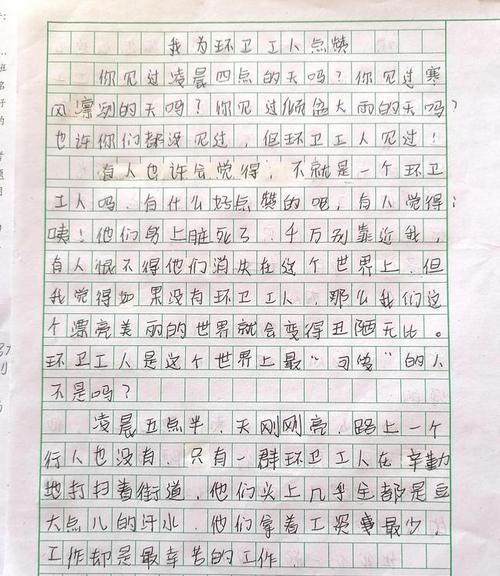 我为环卫工人点赞
你见过凌晨四点的天吗？你见过寒
风凛冽的天吗？你见过倾盆大雨的天吗？
也许你们都没见过，但环卫工人见过！
有人也许会觉得，不就是一个环卫
工人吗，有什么好点赞的呢，有人觉得：
咦！他们身上脏死了，千万别靠近我，
有人恨不得他们消失在这个世界上，但
我觉得如果没有环卫工人，那么我们这
个漂亮美丽的世界就会变得丑陋无比。
环卫工人是这个世界上最“可爱”的人
不是吗？
凌晨五点半，天刚刚亮，路上一个
行人也没有，只有一群环卫工人在辛勤
地打扫着街道，他们头上几乎全都是豆
大点儿的汗水，他们拿着工资最少，
工作却是最辛苦的工作